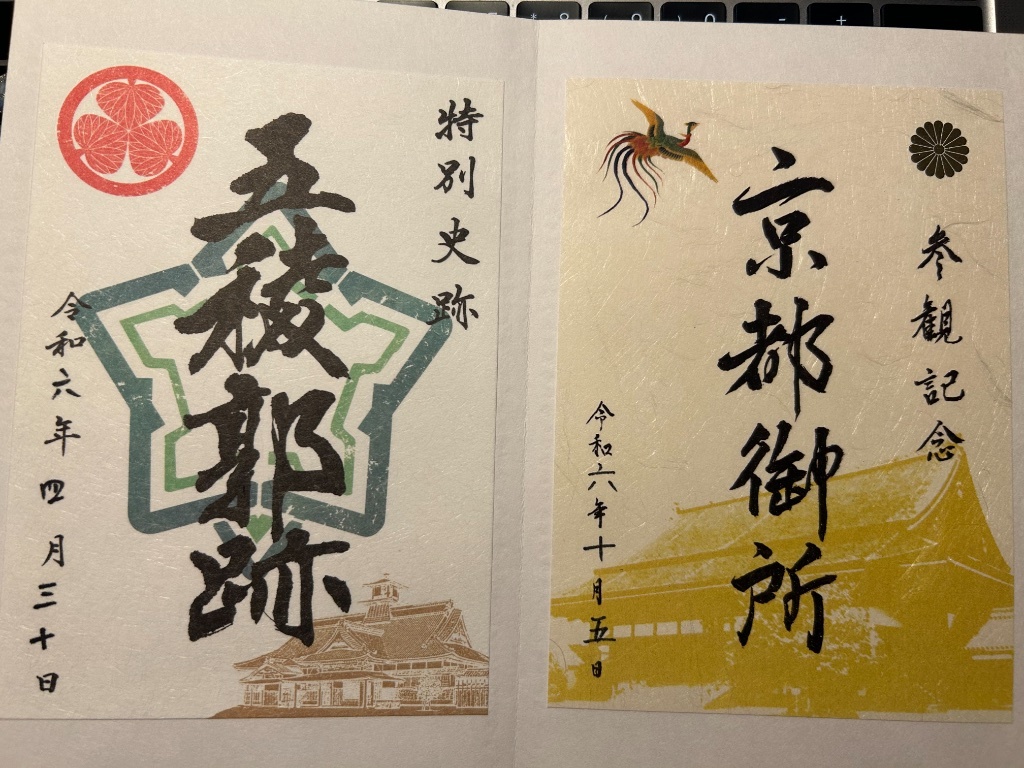 特別史跡
五稜郭跡
令和六年四月三十日
参観記念
京都御所
令和六年十月五日